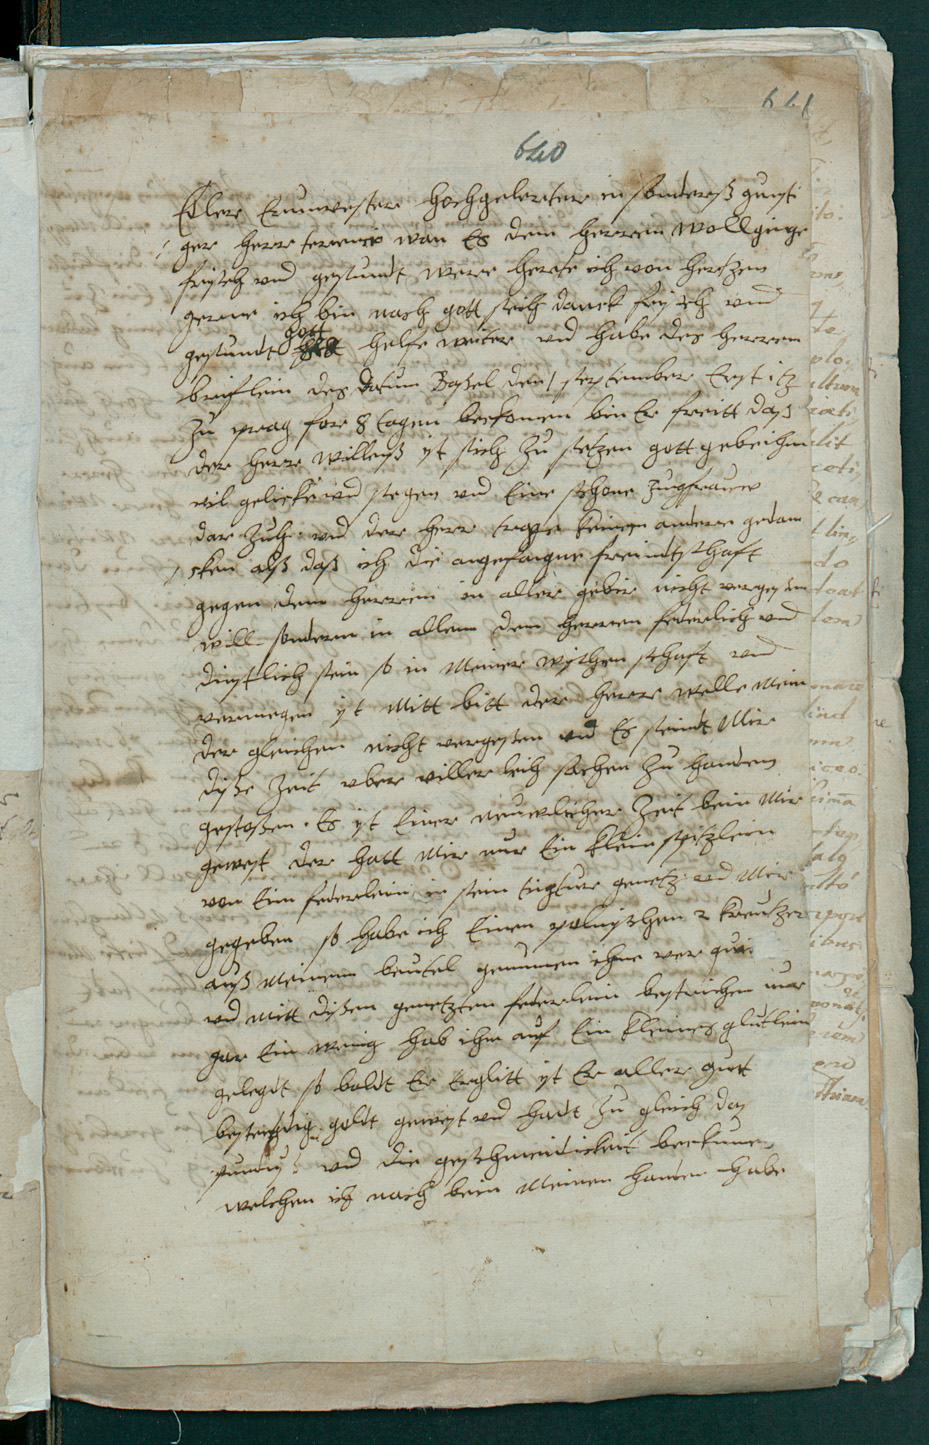 641
640
Edler Ernuester hochgelerter in sonderß gunsti
ger herr wan Es dem herren woll ginge
frisch vnd gesundt were herte ich von hertzen
gerne ich bin noch gott seih danck frisch vnd
gesundt gott helfe weiter vnd habe des herren
briflein des datum Baßel den 1 september Erst itz
zu prag for 8 tagen bekomen bin Er freitt daß
der herr willenß ist sich zu setzen gott gebe ihm
vil gelicke vnd segen vnd Eine schone Jungfrauw
dar zuh vnd der herr trage keinen andere gedan
cken alß daß ich die angefangne freindtschaft
gegen dem herren in aller gebir nicht vergessen
will sonderen in allem dem herren federlich vnd
dinstlich sein so in Meiner wissenschaft vnd
vermegen ist Mitt bitt der herr welle Mein
der gleichen nicht vergessen vnd Es seindt Mir
diße Zeit vber villerleih sachen zu handen
gestoßen. Es ist Einer neuwlicher Zeit bein Mir
gewest der hatt Mir nur Ein klein spitzlein
von Eim federlein in sein tinctur genetz vnd Mir
gegeben so habe ich Einen polnischen 2 kreutzer
auß Meinem beutel genumen ihne
vnd Mitt dißem genetzten federlein bestrichen nur
gar Ein wenig hab ihn auf Ein kleines glutlein
gelegdt so baldt Er Erglitt ist Er aller gutt
bestendig goldt gewest vnd hadt zu gleich das
vnd die geschmeidickeit bekumen
welchen ich noch bein Meinen handen habe